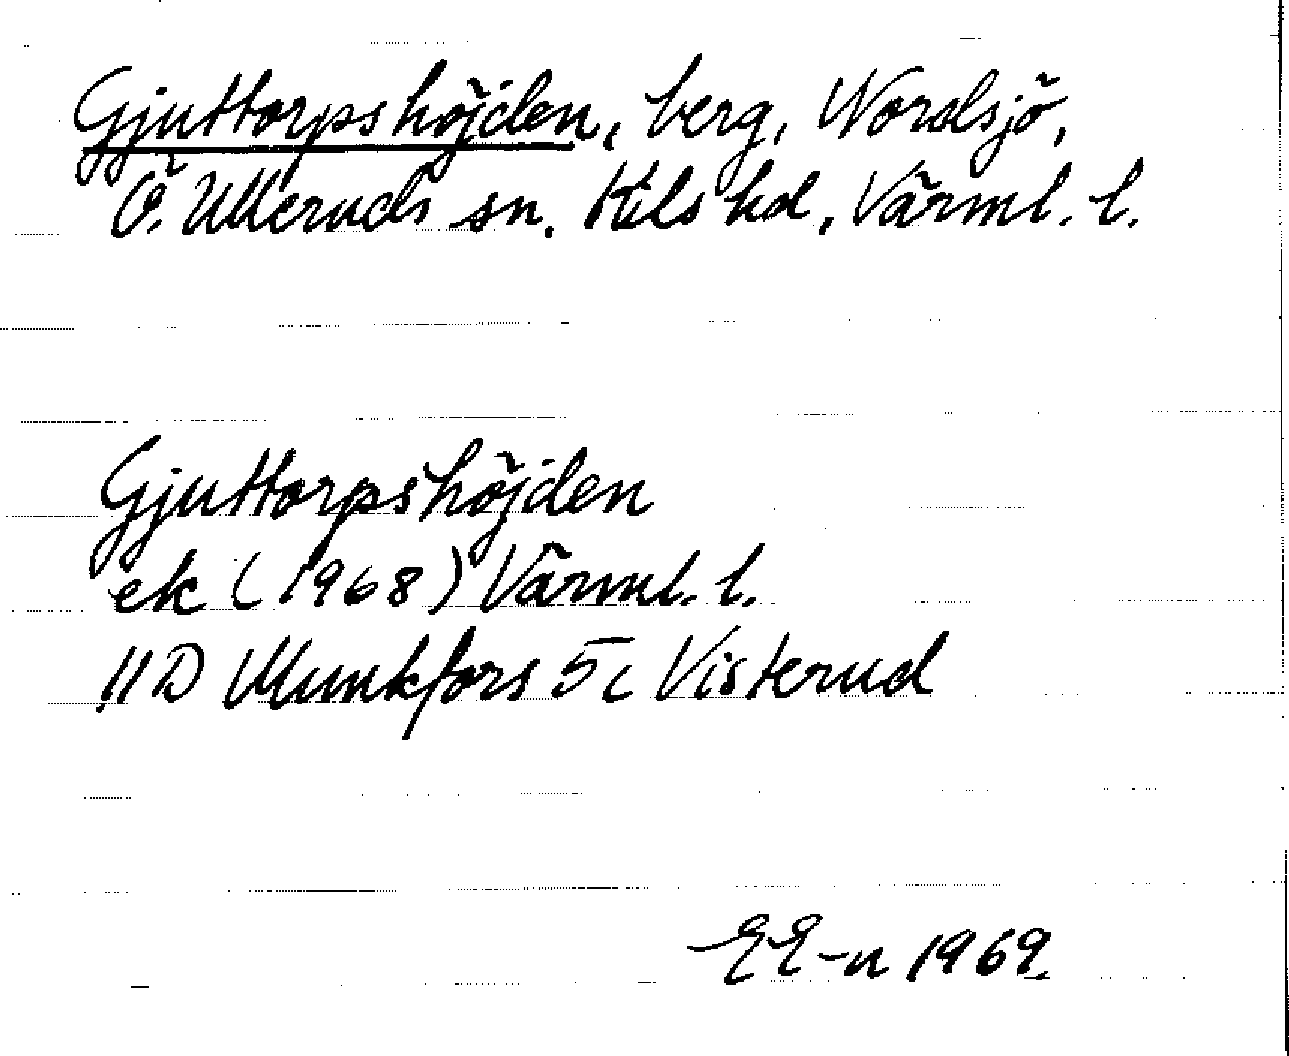 Gjuttorpshöjden, berg, Nordsjö,
Ö. Ulleruds sn. Kils hd, Värml. l.
Gjuttorpshöjden
ek (1968) Värml. l.
11D Munkfors 5c Visterud
EE-n 1969